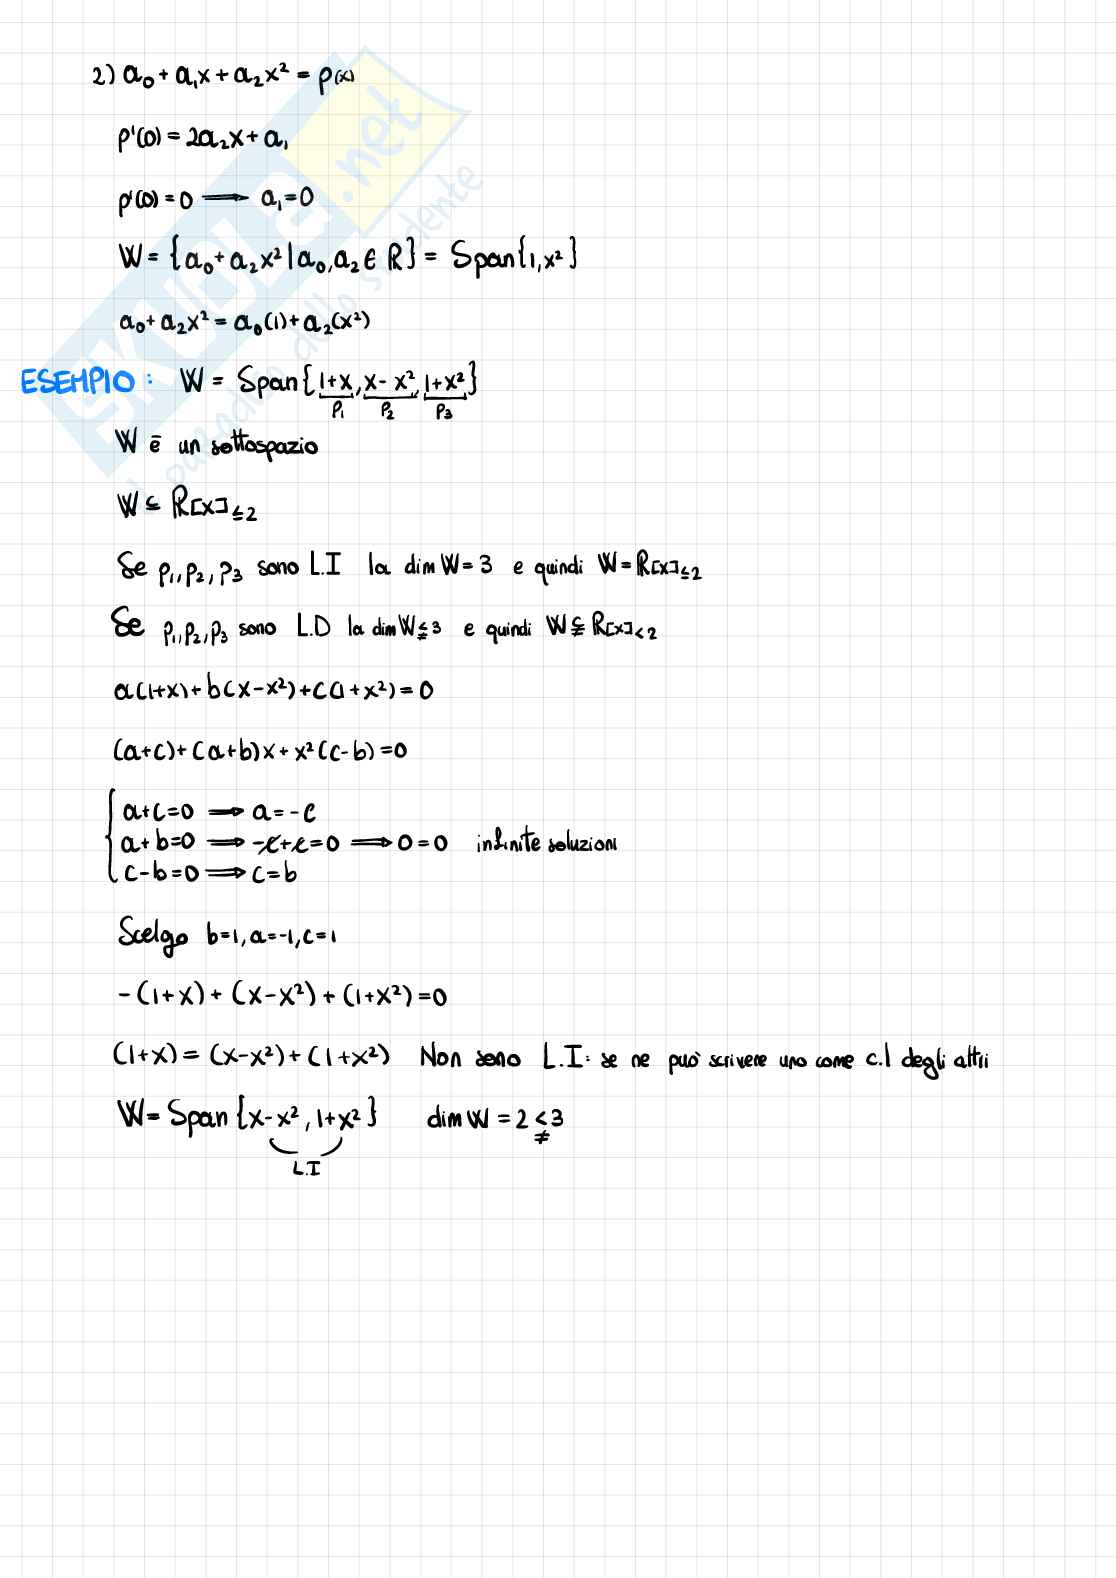 2) a₀+a₁x+a₂x² = p(x)
p'(0) = 2a₂x+a₁
p'(0) = 0 ⟹ a₁=0
W = {a₀+a₂x² | a₀,a₂ ∈ ℝ} = Span{1,x²}
a₀+a₂x² = a₀(1)+a₂(x²)
ESEMPIO: W = Span{1+x, x-x², 1+x²}
p₁ p₂ p₃
W è un sottospazio
W ⊆ ℝ[x]≤2
Se p₁,p₂,p₃ sono L.I la dim W = 3 e quindi W = ℝ[x]≤2
Se p₁,p₂,p₃ sono L.D la dim W ≨ 3 e quindi W ⊊ ℝ[x]<2
a(1+x)+b(x-x²)+c(1+x²) = 0
(a+c)+(a+b)x+x²(c-b) = 0
a+c=0 ⟹ a=-c
a+b=0 ⟹ -c+c=0 ⟹ 0=0 infinite soluzioni
c-b=0 ⟹ c=b
Scelgo b=1, a=-1, c=1
-(1+x)+(x-x²)+(1+x²)=0
(1+x) = (x-x²)+(1+x²) Non sono L.I: se ne può scrivere uno come c.l degli altri
W = Span{x-x², 1+x²} dim W = 2 ≨ 3
L.I
SKUOLA.net
il paradiso dello studente